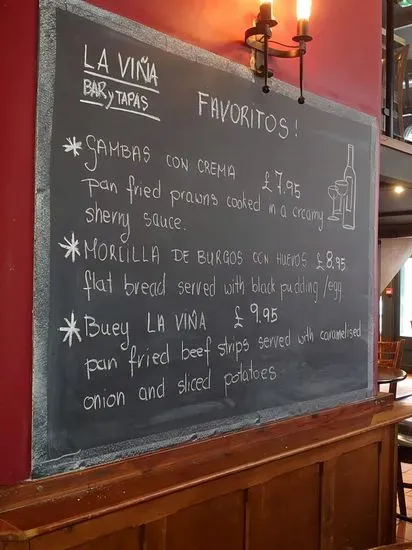 LA VIÑA
BAR y TAPAS
FAVORITOS!
* GAMBAS CON CREMA £7.95
pan fried prawns cooked in a creamy
sherry sauce.
* MORCILLA DE BURGOS CON HUEVOS £8.95
flat bread served with black pudding /egg
* BUEY LA VIÑA £9.95
pan fried beef strips served with caramelised
onion and sliced potatoes